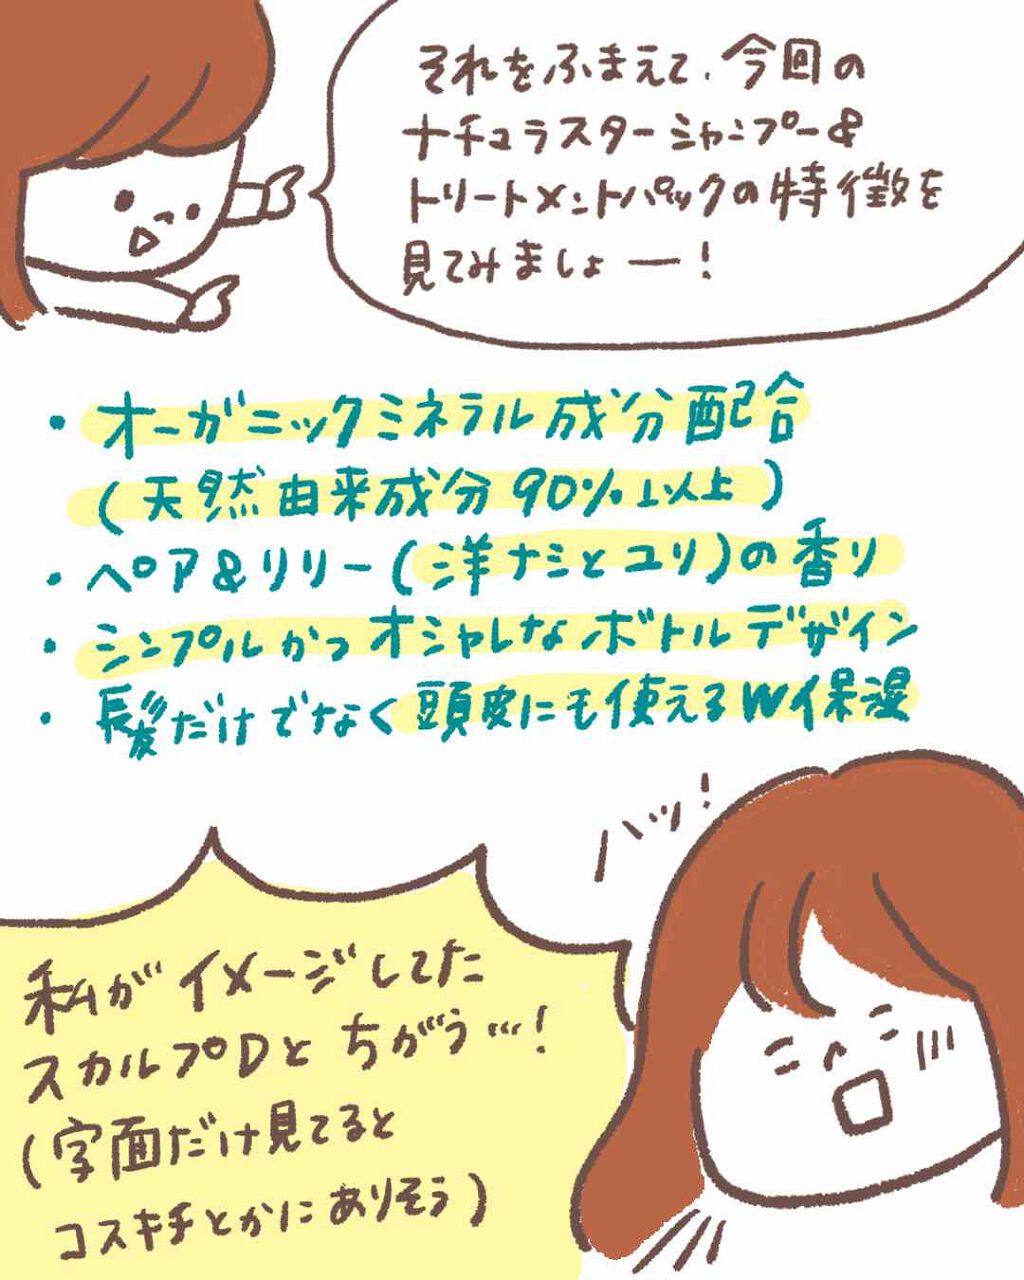 それをふまえて、今回の
ナチュラスターシャンプー&
トリートメントパックの特徴を
見てみましょー!
・オーガニックミネラル成分配合
(天然由来成分90%以上)
・ペア&リリー(洋ナシとユリ)の香り
・シンプルかつオシャレなボトルデザイン
・髪だけでなく頭皮にも使えるW保湿
ハッ!
私がイメージしてた
スカルプDとちがう…!
(字面だけ見てると
コスキチとかにありそう)